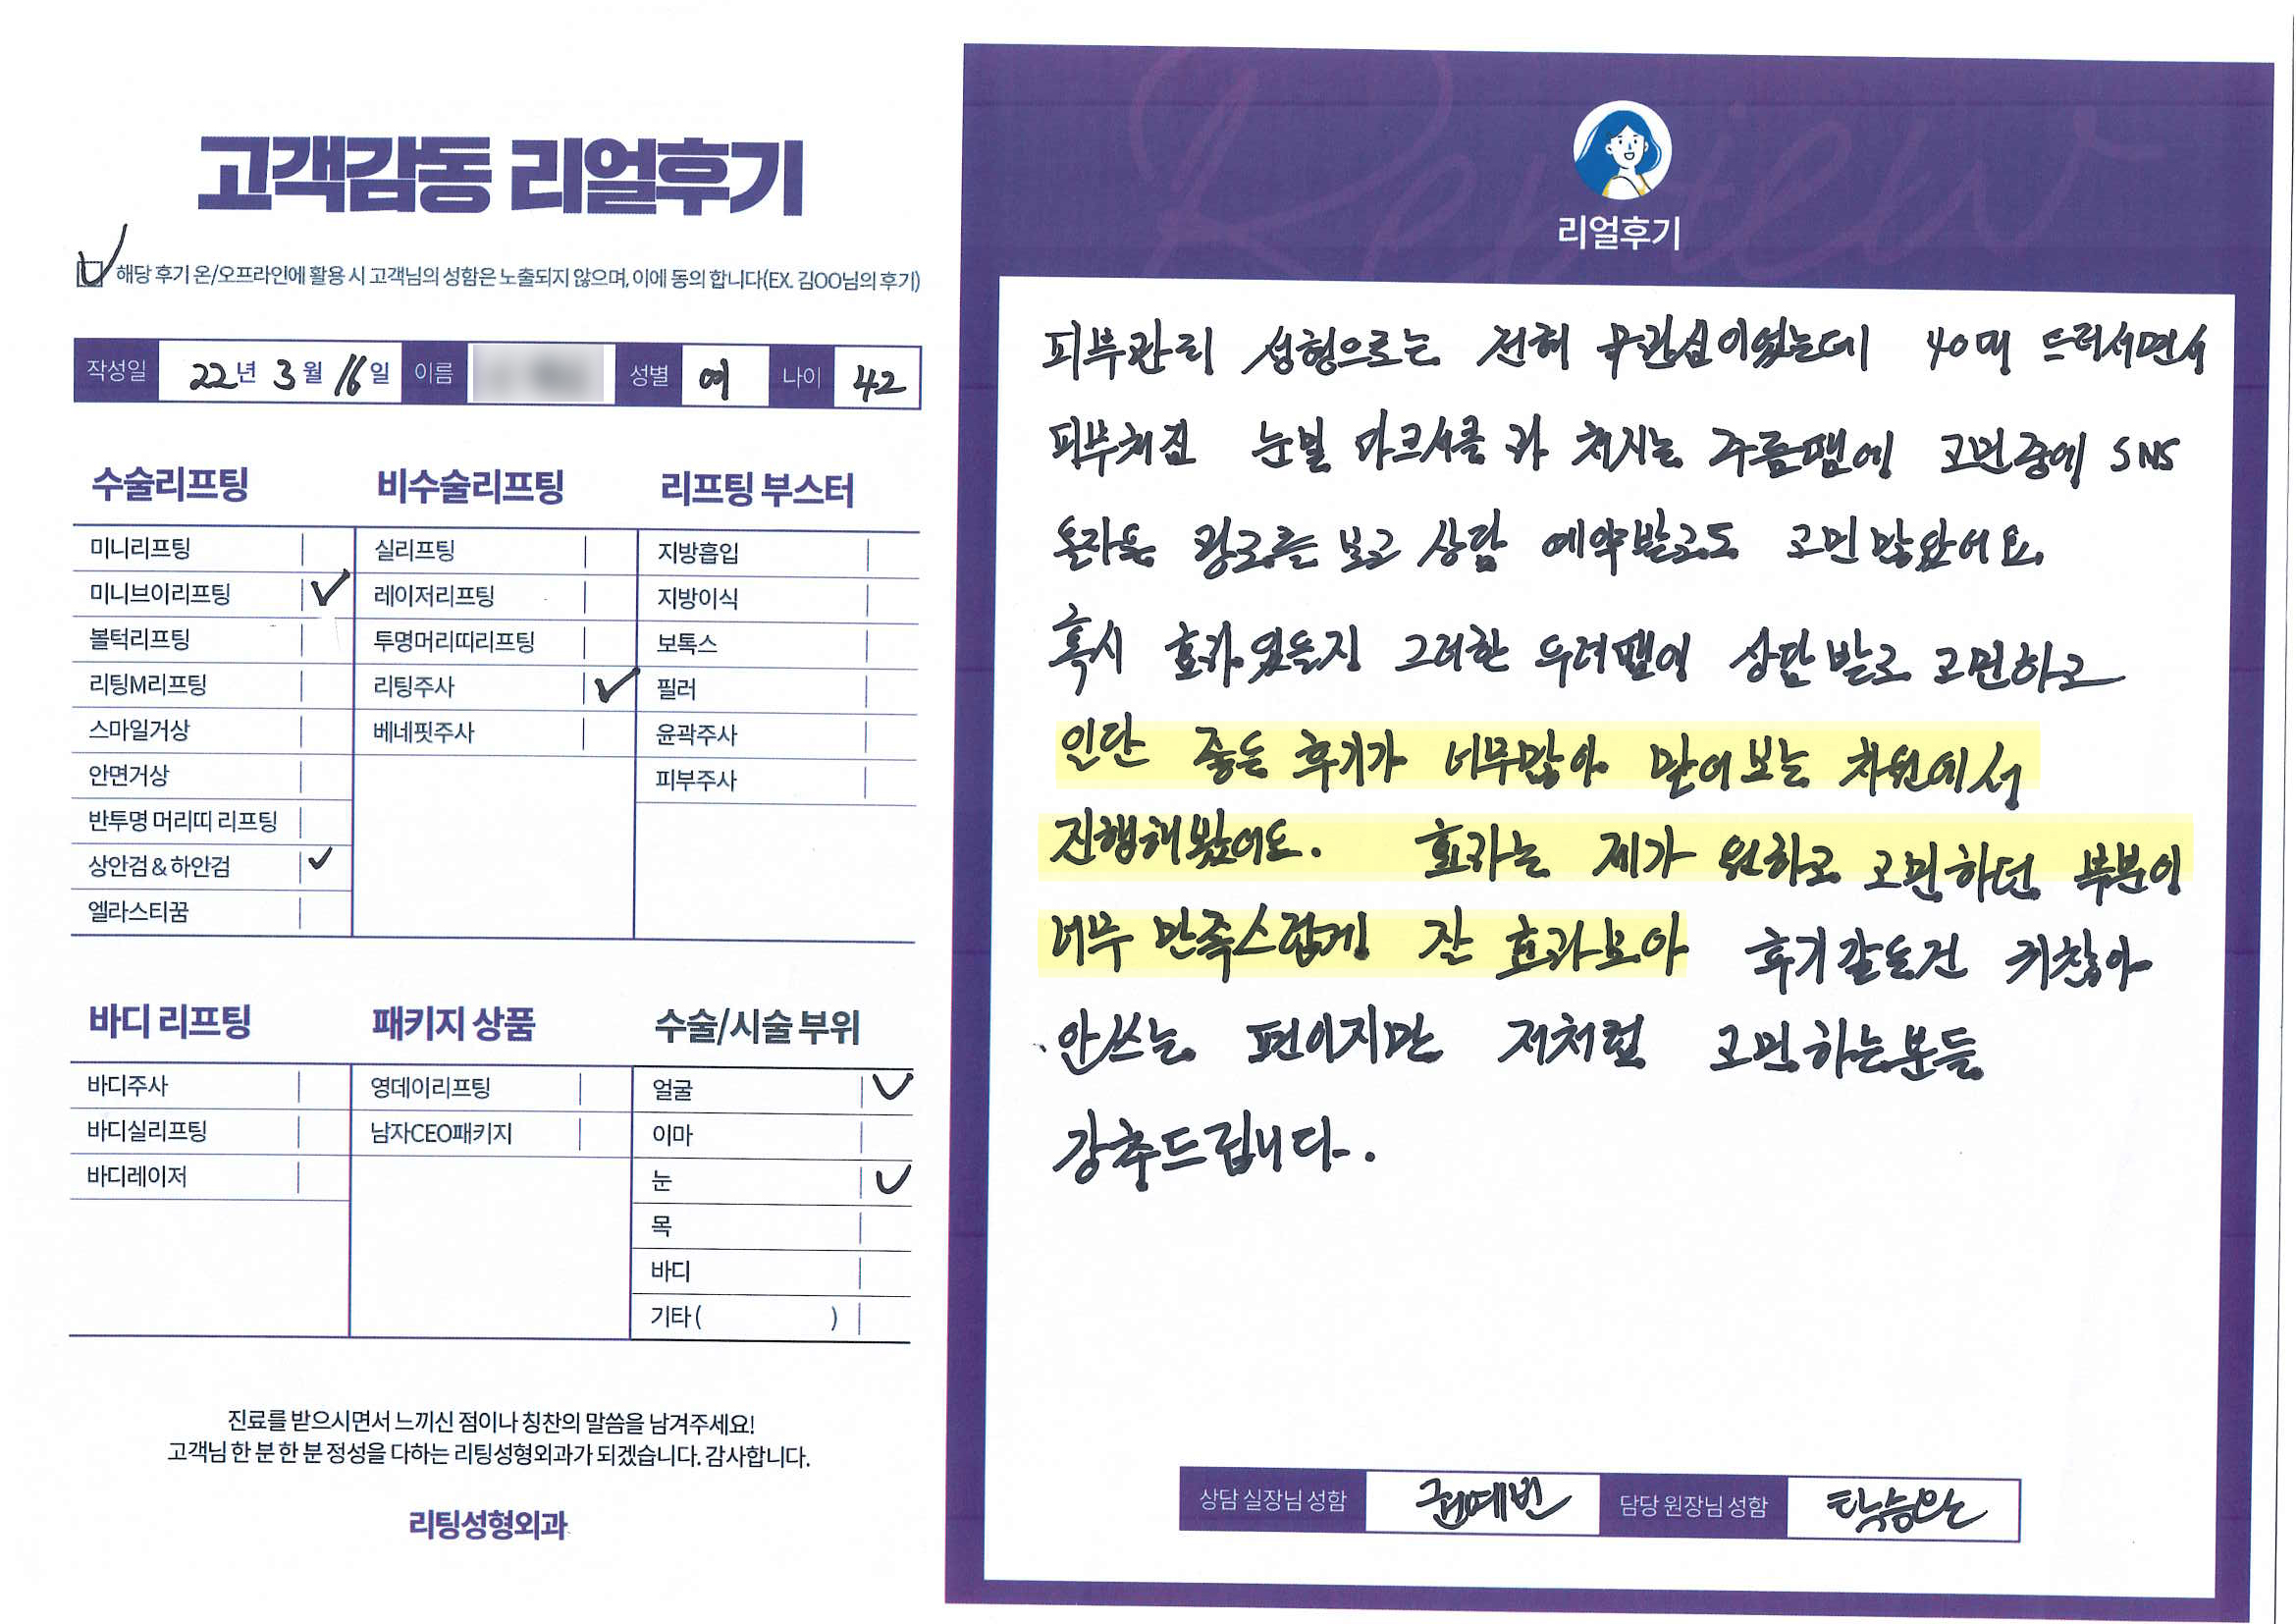 고객감동 리얼후기
해당 후기 온/오프라인에 활용 시 고객님의 성함은 노출되지 않으며, 이에 동의 합니다(EX. 김OO님의 후기)
작성일 22년 3월 16일 이름 성별 여 나이 42
수술리프팅
미니리프팅
미니브이리프팅
볼턱리프팅
리팅M리프팅
스마일거상
안면거상
반투명 머리띠 리프팅
상안검 & 하안검
엘라스티꿈
비수술리프팅
실리프팅
레이저리프팅
투명머리띠리프팅
리팅주사
베네핏주사
리프팅 부스터
지방흡입
지방이식
보톡스
필러
윤곽주사
피부주사
바디 리프팅
바디주사
바디실리프팅
바디레이저
패키지 상품
영데이리프팅
남자CEO패키지
수술/시술 부위
얼굴
이마
눈
목
바디
기타 ( )
진료를 받으시면서 느끼신 점이나 칭찬의 말씀을 남겨주세요!
고객님 한 분 한 분 정성을 다하는 리팅성형외과가 되겠습니다. 감사합니다.
리팅성형외과
Review
리얼후기
피부관리 성형으로는 전혀 무관심이었는데 40대 드러서면서
피부처짐 눈밑 다크서클과 처지는 주름땜에 고민중에 SNS
광고를 보고 상담 예약받고도 고민 많았어요.
혹시 효과있을지 그러한 우려땜에 상담받고 고민하고
일단 좋은 후기가 너무많아 믿어보는 차원에서
진행해봤어요. 효과는 제가 원하고 고민하던 부분이
너무 만족스럽게 잘 효과보아 후기같은건 귀찮아
안쓰는 편이지만 저처럼 고민하는분들
강추드립니다.
상담 실장님 성함 권예빈 담당 원장님 성함 탁승완